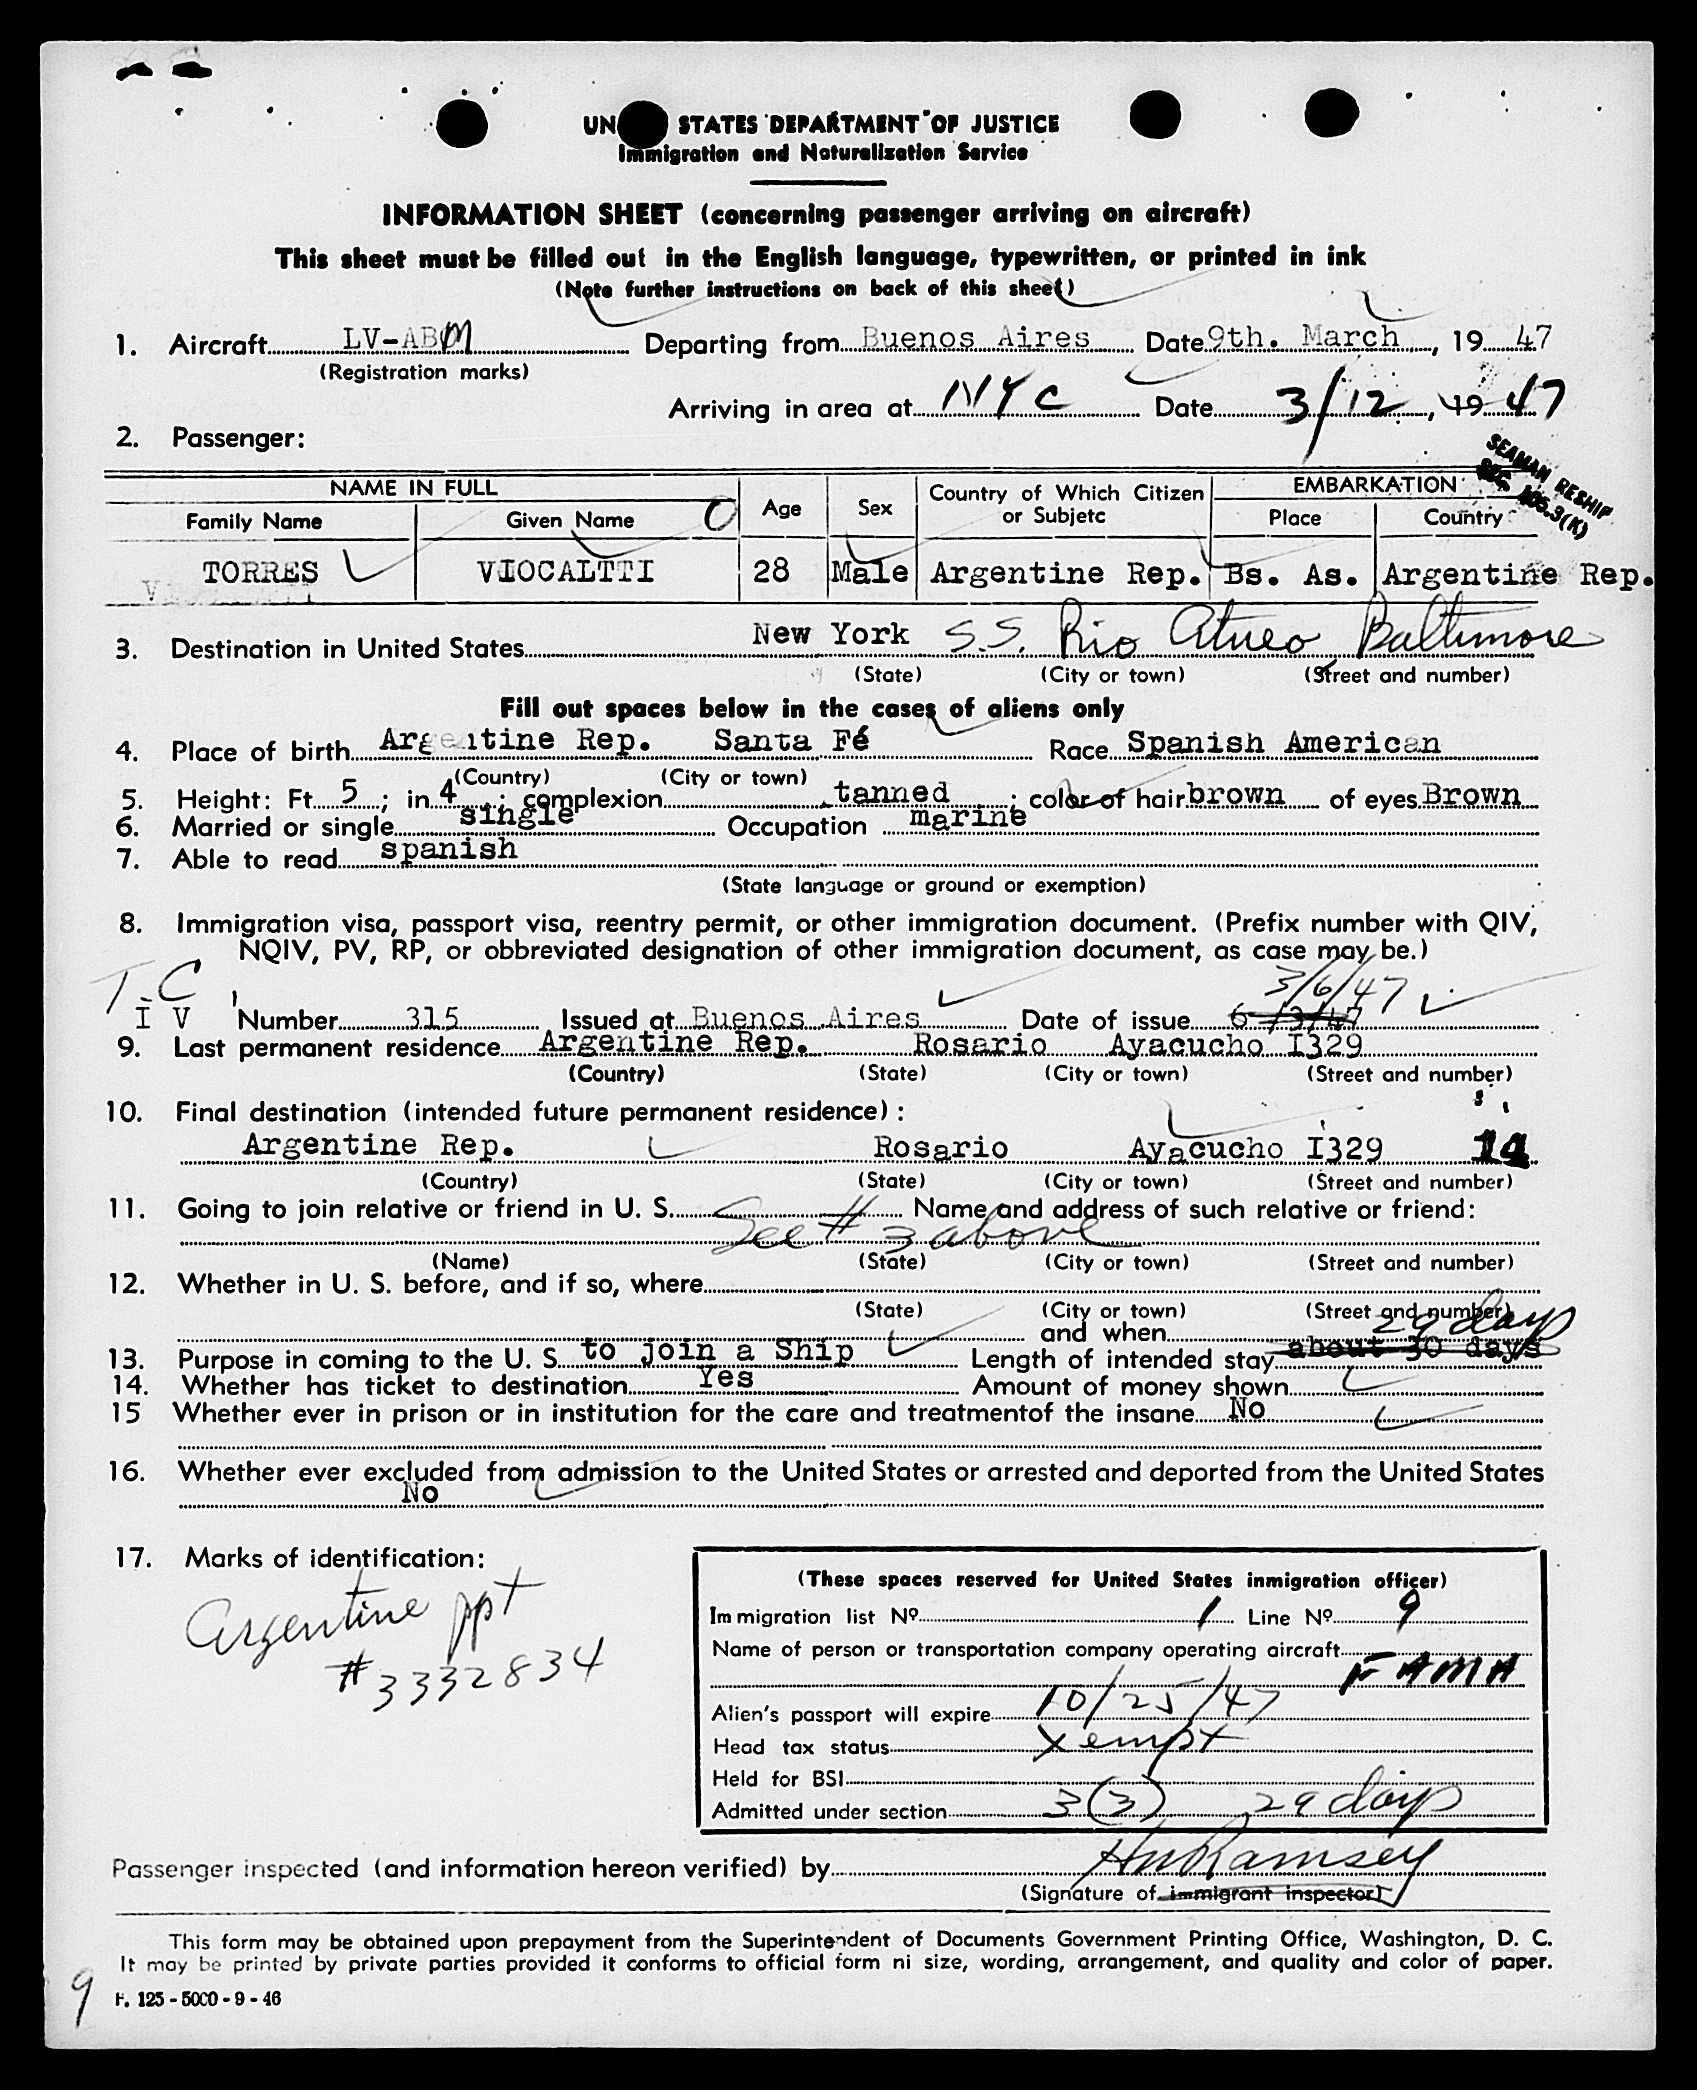 STATES DEPARTMENT OF JUSTICE
Immigration and Naturalization Service
INFORMATION SHEET (concerning passenger arriving on aircraft)
This sheet must be filled out in the English language, typewritten, or printed in ink
(Note further instructions on back of this sheet)
1. Aircraft LV-ABM Departing from Buenos Aires Date 9th. March, 1947
(Registration marks)
Arriving in area at NYC Date 3/12, 19 47
2. Passenger:
SEAMAN RESHIP
SEC. 105.3(K)
NAME IN FULL Age Sex Country of Which Citizen or Subjetc EMBARKATION
Family Name Given Name Place Country
TORRES VIOCALTTI 28 Male Argentine Rep. Bs. As. Argentine Rep.
3. Destination in United States New York S.S. Rio Atueo Baltimore
(State) (City or town) (Street and number)
Fill out spaces below in the cases of aliens only
4. Place of birth Argentine Rep. Santa Fé Race Spanish American
(Country) (City or town)
5. Height: Ft. 5; in. 4; complexion tanned; color of hair brown of eyes Brown
6. Married or single single Occupation marine
7. Able to read spanish
(State language or ground or exemption)
8. Immigration visa, passport visa, reentry permit, or other immigration document. (Prefix number with QIV,
NQIV, PV, RP, or obbreviated designation of other immigration document, as case may be.)
T C 3/6/47
I V Number 315 Issued at Buenos Aires Date of issue 6/3/47
9. Last permanent residence Argentine Rep. Rosario Ayacucho I329
(Country) (State) (City or town) (Street and number)
10. Final destination (intended future permanent residence):
Argentine Rep. Rosario Ayacucho I329 14
(Country) (State) (City or town) (Street and number)
11. Going to join relative or friend in U. S. Name and address of such relative or friend:
See # 3 above
(Name) (State) (City or town) (Street and number)
12. Whether in U. S. before, and if so, where
(State) (City or town) (Street and number)
and when 29 days
13. Purpose in coming to the U. S. to join a Ship Length of intended stay about 30 days
14. Whether has ticket to destination Yes Amount of money shown
15 Whether ever in prison or in institution for the care and treatmentof the insane No
16. Whether ever excluded from admission to the United States or arrested and deported from the United States
No
17. Marks of identification:
Argentine ppt
#3332834
(These spaces reserved for United States inmigration officer)
Immigration list Nº 1 Line Nº 9
Name of person or transportation company operating aircraft
FAMA
Alien's passport will expire 10/25/47
Head tax status Xempt
Held for BSI
Admitted under section 3(3) 29 days
Passenger inspected (and information hereon verified) by HW Ramsey
(Signature of immigrant inspector)
This form may be obtained upon prepayment from the Superintendent of Documents Government Printing Office, Washington, D. C.
It may be printed by private parties provided it conforms to official form ni size, wording, arrangement, and quality and color of paper.
9 F. 125 - 5000 - 9 - 46